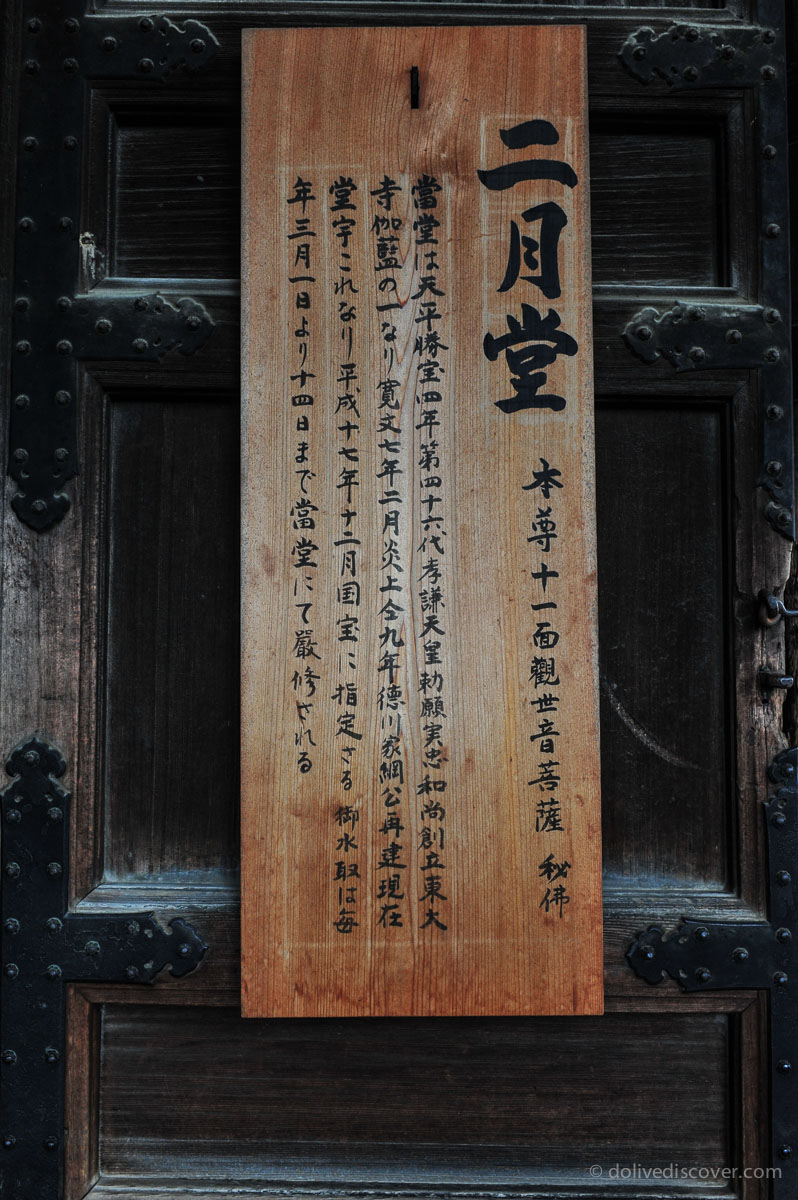 二月堂 本尊十一面觀世音菩薩 秘佛
當堂は天平勝宝四年第四十六代孝謙天皇勅願実忠和尚創立東大
寺伽藍の一なり寛文七年二月炎上仝九年徳川家綱公再建現在
堂宇これなり平成十七年十二月国宝に指定さる 御水取は毎
年三月一日より十四日まで當堂にて嚴修される
© dolivediscover.com